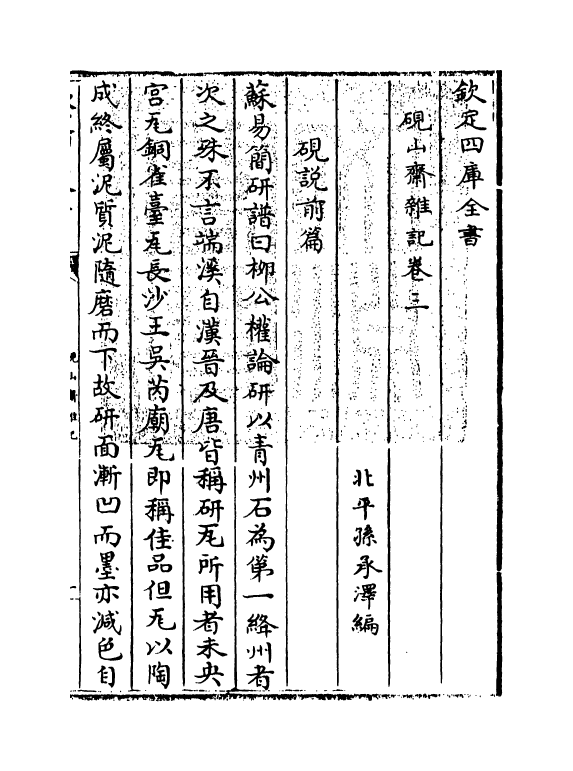 欽定四庫全書
硯山齋雜記卷三
北平孫承澤編
硯說前篇
蘇易簡研譜曰柳公權論研以青州石為第一絳州者
次之殊不言端溪自漢晉及唐皆稱研瓦所用者未央
宫瓦銅雀臺瓦長沙王吳芮廟瓦即稱佳品但瓦以陶
成終屬泥質泥隨磨而下故研面漸凹而墨亦減色自
硯山齋雜記